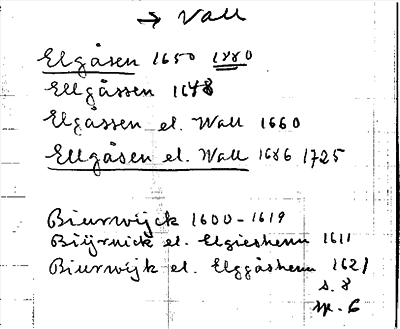 → Vall
Elgåsen 1650 1880
Ellgåssen 1648
Elgåssen el. Wall 1660
Ellgåsen el. Wall 1686 1725
Biurwijck 1600-1619
Biÿrnick el. Elgieshenn 1611
Biurwijk el. Elggåshenn 1621
s. 8